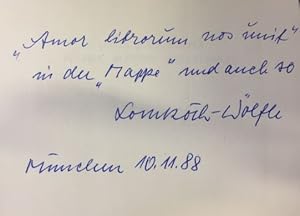 „Amor librorum nos unit“
in der „Mappe“ und auch so
Lomkäth-Wölfle
München 10.11.88